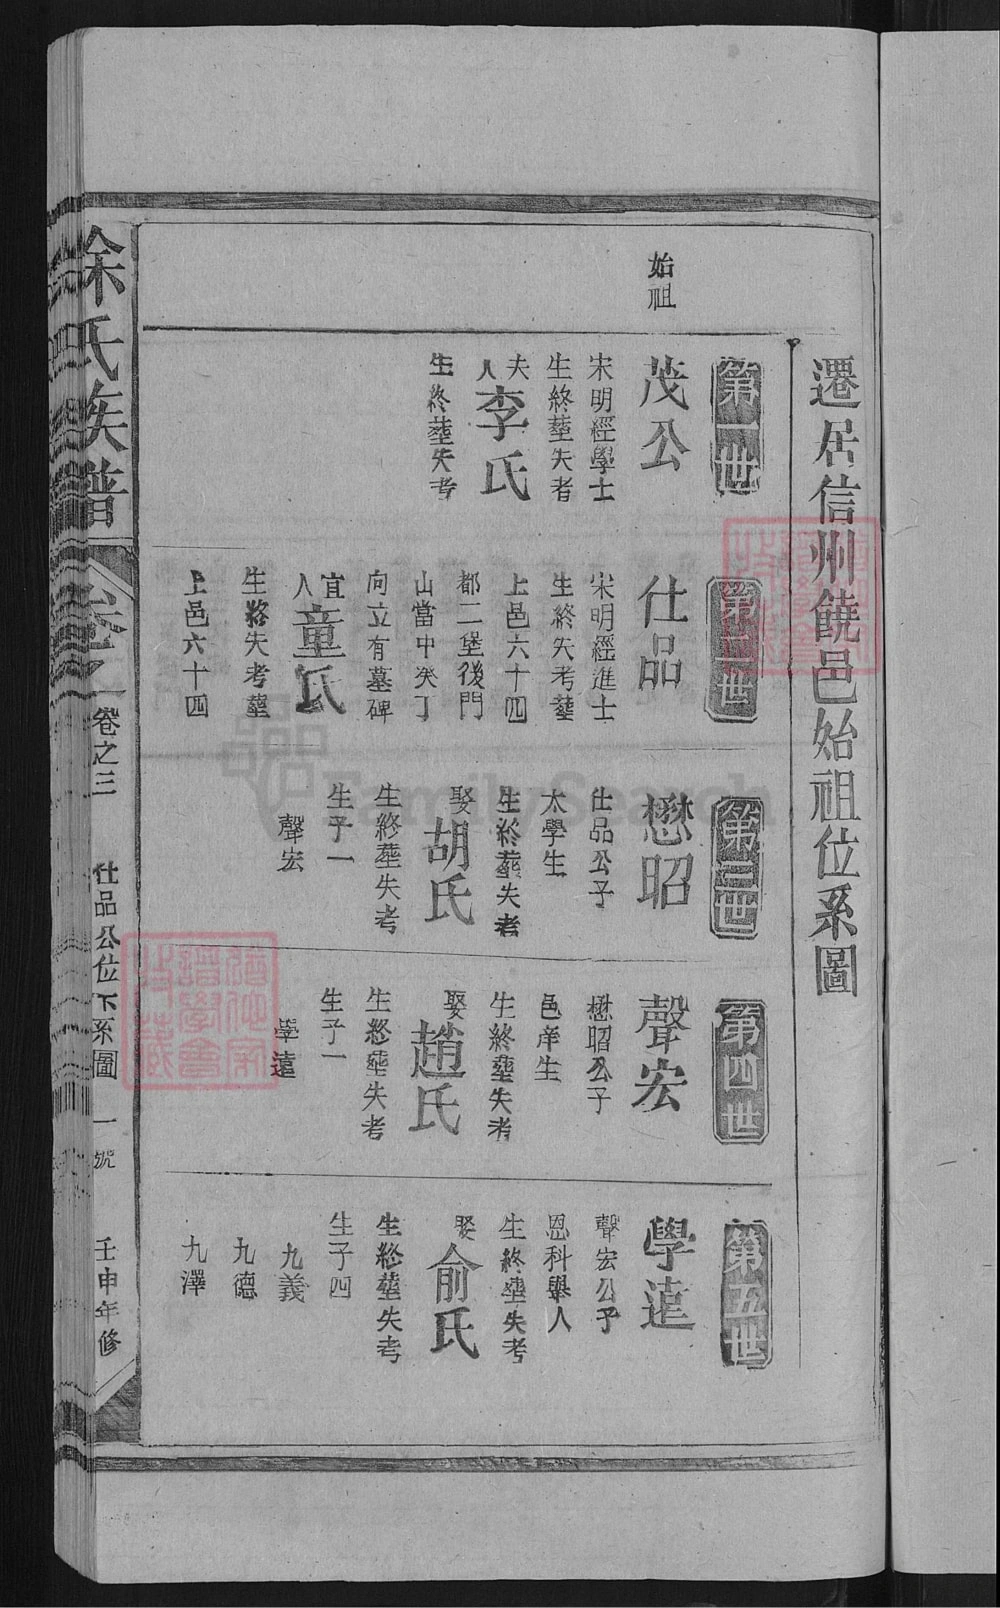 遷居信州饒邑始祖位系圖
始祖
第一世
茂公
宋明經學士
生終塟失考
夫人李氏
生終塟失考
第二世
仕品
宋明經進士
生終失考塟
上邑六十四
都二堡後門
山當中癸丁
向立有墓碑
宜人童氏
生終失考塟
上邑六十四
第三世
懋昭
仕品公子
太學生
生終塟失考
娶胡氏
生終塟失考
生子一
聲宏
第四世
聲宏
懋昭公子
邑庠生
生終塟失考
娶趙氏
生終塟失考
生子一
學遠
第五世
學遠
聲宏公子
恩科舉人
生終塟失考
娶俞氏
生終塟失考
生子四
九義
九德
九澤
徐氏族譜
卷之
卷之三
仕品公位下系圖
一號
壬申年修
FamilySearch